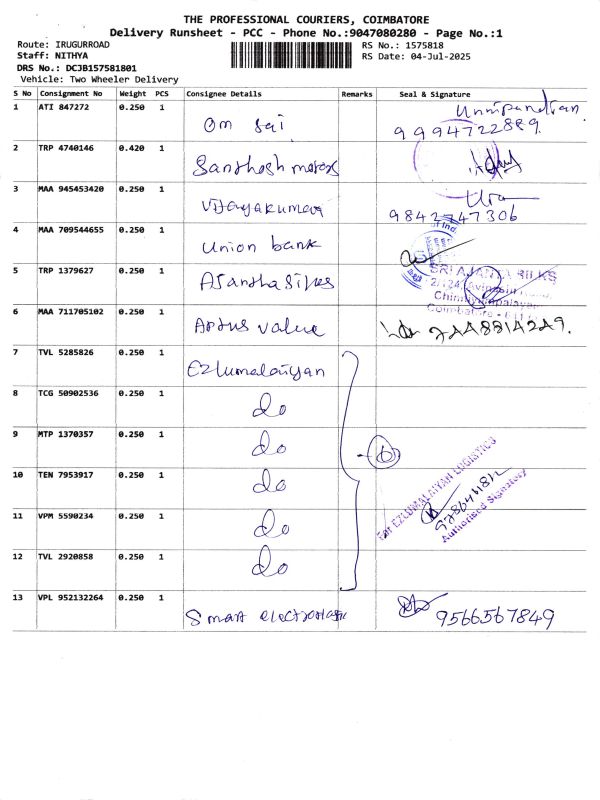 THE PROFESSIONAL COURIERS, COIMBATORE
Delivery Runsheet - PCC - Phone No.:9047080280 - Page No.:1
Route: IRUGURROAD
RS No.: 1575818
Staff: NITHYA
RS Date: 04-Jul-2025
DRS No.: DCJB157581801
Vehicle: Two Wheeler Delivery
S No Consignment No Weight PCS Consignee Details Remarks Seal & Signature
1 ATI 847272 0.250 1 Om sai
9994722889
2 TRP 4740146 0.420 1 Santhosh
3 MAA 945453420 0.250 1 Vijayakumar
9842747306
4 MAA 709544655 0.250 1 Union bank
5 TRP 1379627 0.250 1
SRI AJANTA SILKS
Coimbatore
6 MAA 711705102 0.250 1 value
7 TVL 5285826 0.250 1 Ezlumalaiyan
8 TCG 50902536 0.250 1 do
9 MTP 1370357 0.250 1 do
10 TEN 7953917 0.250 1 do
11 VPM 5590234 0.250 1 do
12 TVL 2920858 0.250 1 do
6
For EZLUMALAIYAH LOGISTICS
Authorised Signatory
13 VPL 952132264 0.250 1 Smart
9566567849